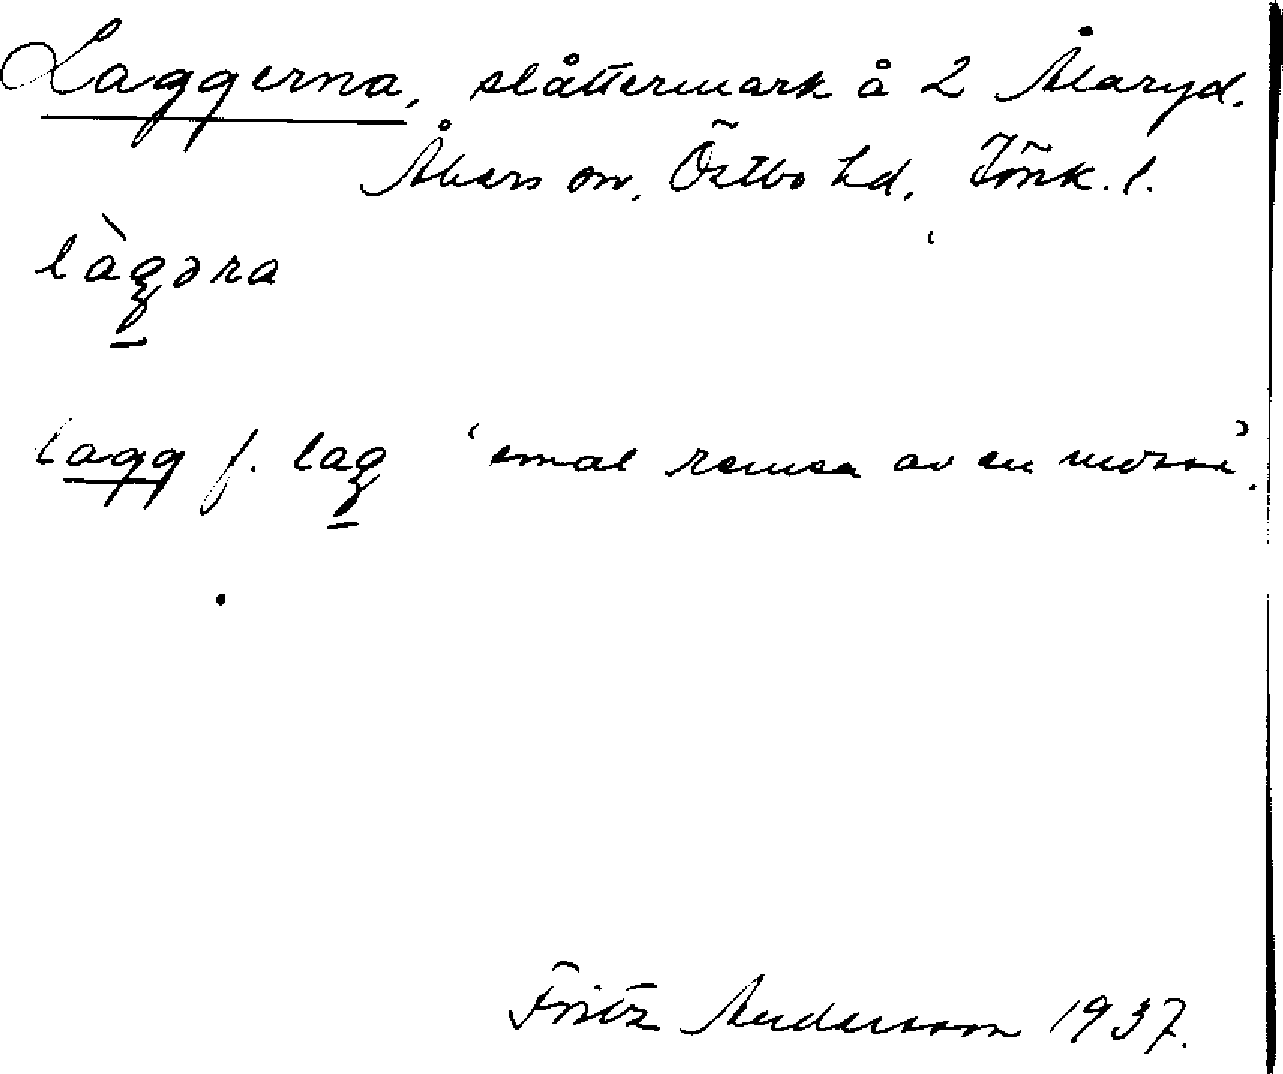 Laggerna, slåttermark å 2 Ålaryd.
Åkers sn, Östbo hd, Jönk. l.
làgəra
lagg f. lag 'smal remsa av en mosse'.
Fritz Andersson 1937.